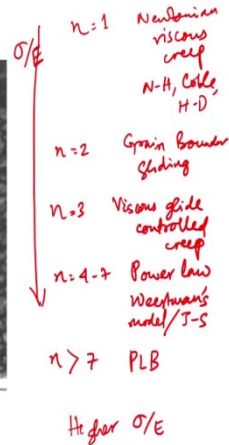 σ/E
n=1 Newtonian
viscous
creep
N-H, Coble,
H-D
n=2 Grain Boundary
Sliding
n=3 Viscous glide
controlled
creep
n=4-7 Power law
Weertman's
model/J-S
n>7 PLB
Higher σ/E